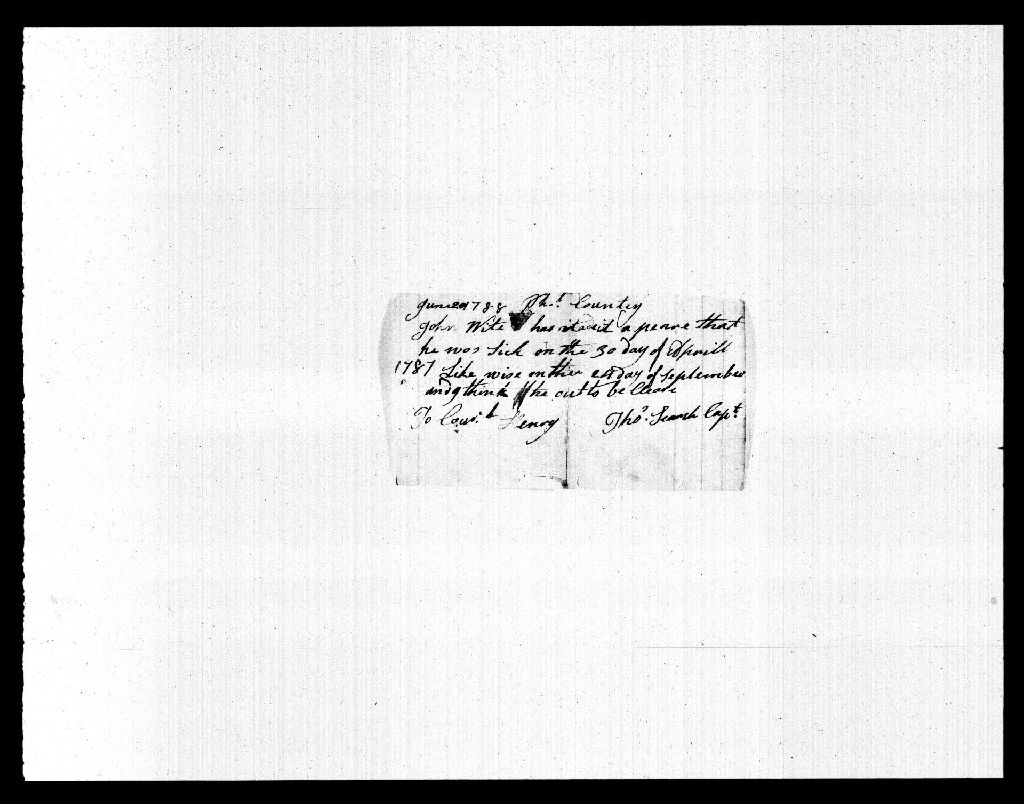 June 1788 Ph.ª County
John Wite has it a peare that
he was Sick on the 30 day of Apriell
1787 Like wise on the day of September
and I think he out to be Cleare
To Henry Thos. Search Capt.